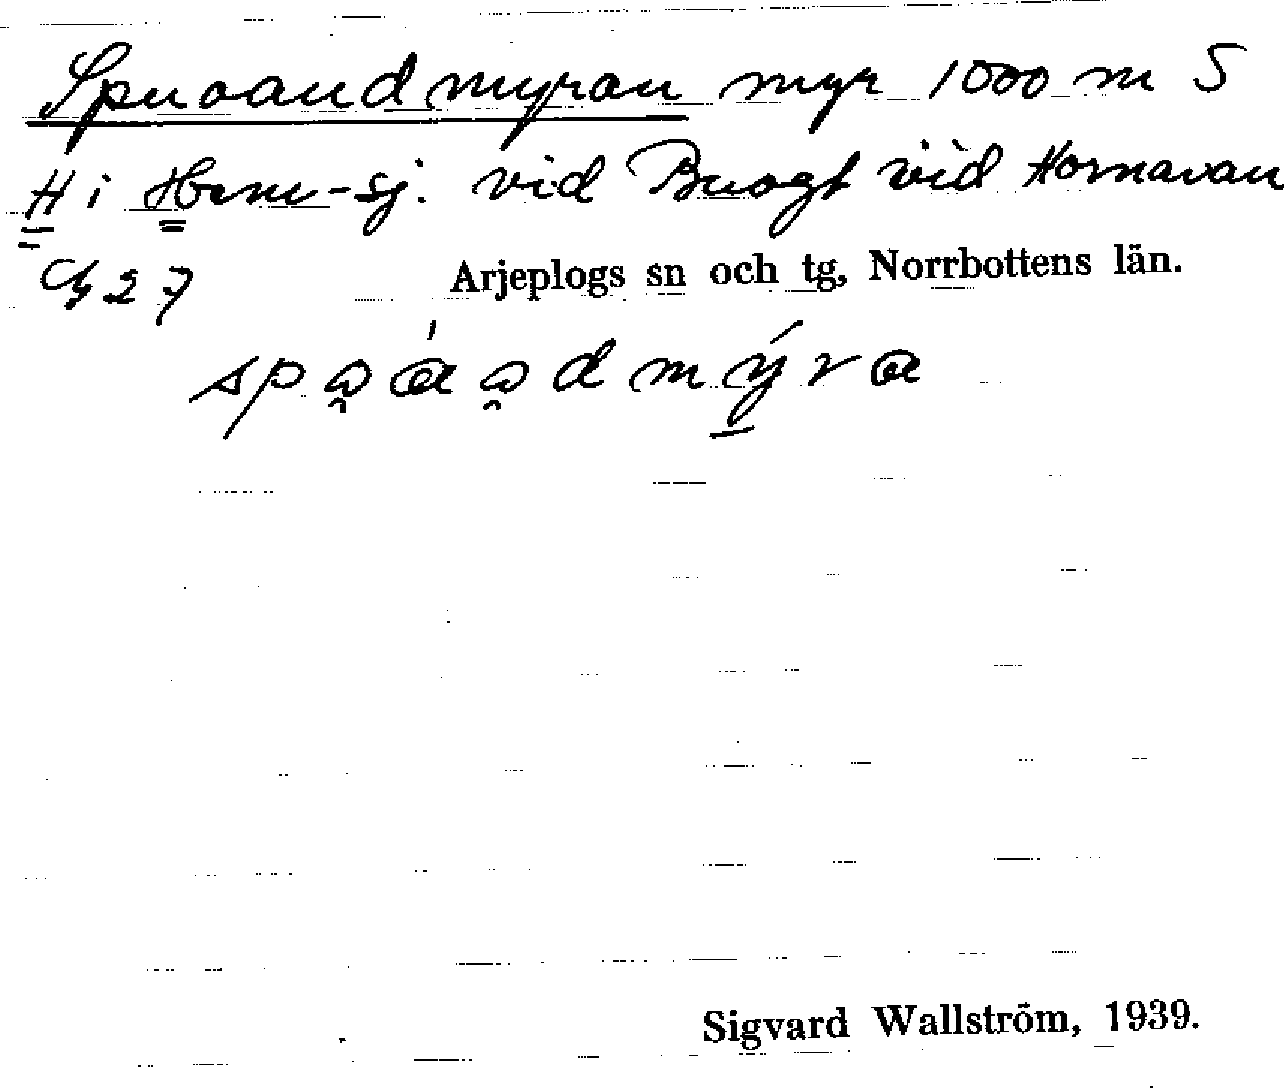 Spuoaudmyran myr 1000 m S
H i Horn-sj. vid Buogt vid Hornavan
27
Arjeplogs sn och tg, Norrbottens län.
Sigvard Wallström, 1939.